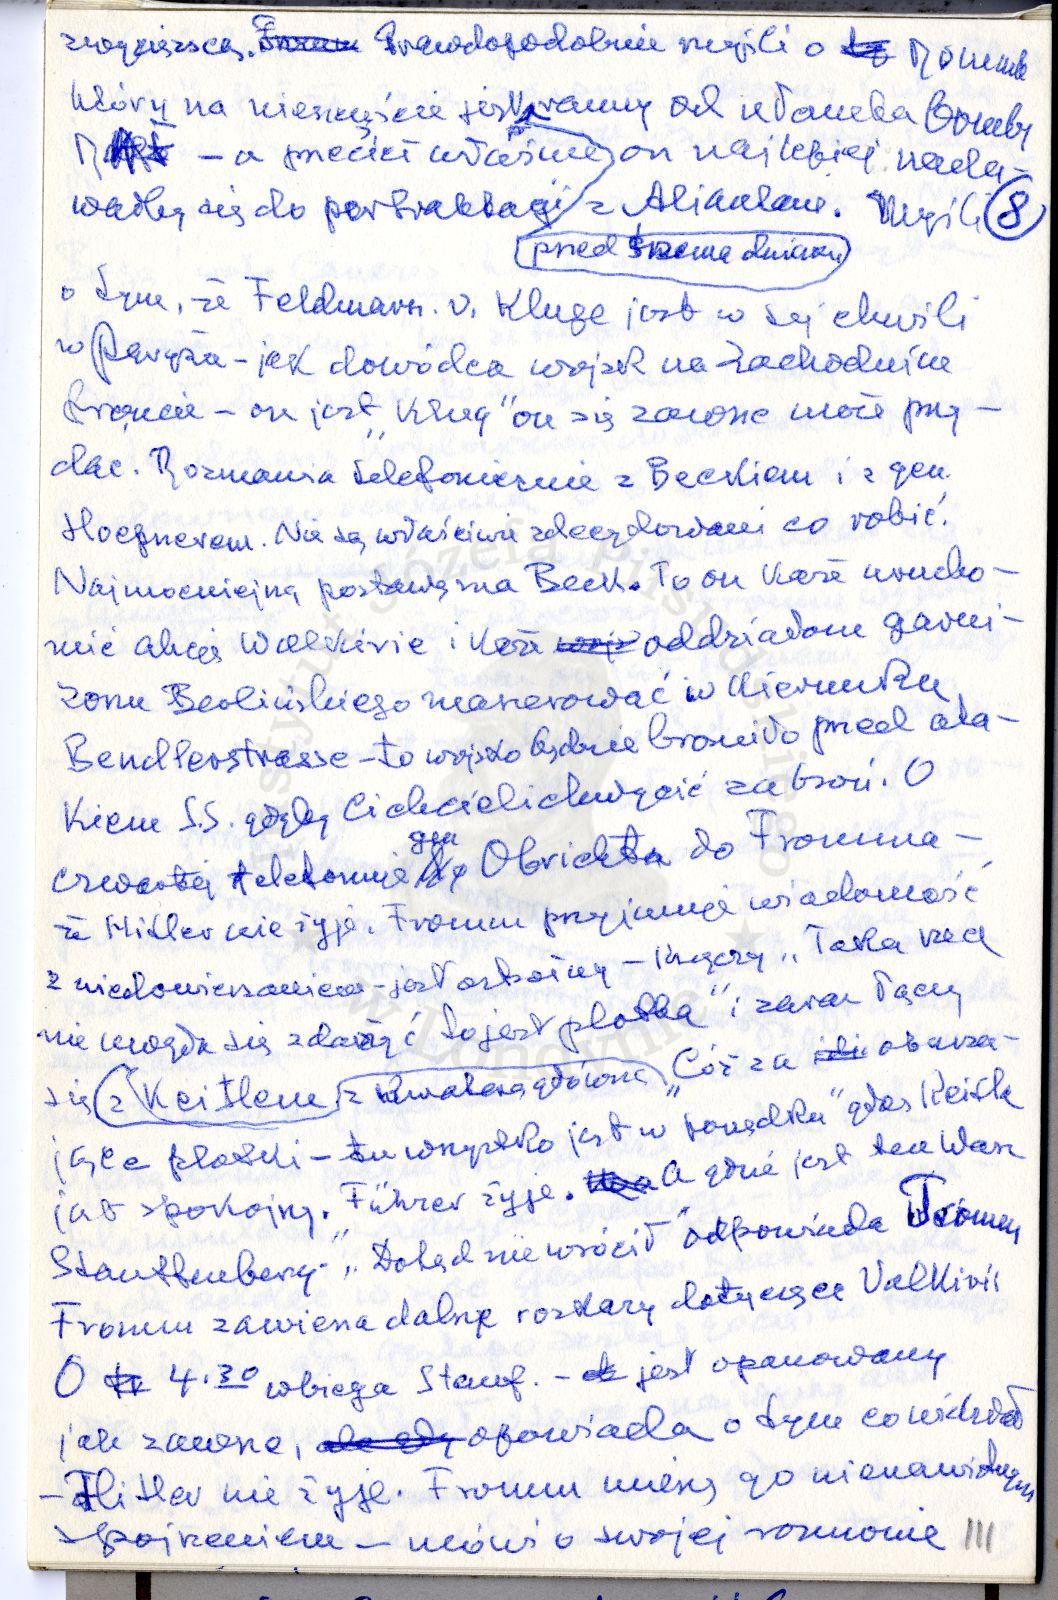 zwycięzcą. Fromm Prawdopodobnie myśli o tę Rommlu
który na nieszczęście jest ranny od ułamka bomby
– a przecież właśnie on najlepiej nada-
wałby się do pertraktacji z Aliantami. Myśli 8
przed trzema dniami
o tym, że Feldmarsz. v. Kluge jest w tej chwili
w Paryżu – jak dowódca wojsk na zachodnim
froncie – on jest „Klug" on się zawsze może przy-
dać. Rozmawia telefonicznie z Beckiem i z gen.
Hoepnerem. Nie są właściwie zdecydowani co robić.
Najmocniejszą postawę ma Beck. To on każe urucho-
mić akcję Walkirie i każe wojs oddziałom garni-
zonu Berlińskiego manerować w kierunku
Bendlerstrasse – to wojsko będzie broniło przed ata-
kiem S.S. gdyby Ci chcieli chwycić za broń. O
czwartej telefonuje gen Olbrichta do Fromma –
że Hitler nie żyje. Fromm przyjmuje wiadomość
z niedowierzaniem – jest ostrożny – krzyczy „Taka rzecz
nie mogła się zdarzyć to jest plotka" i zaraz łączy
się z Keitlem z kwaterą główną „Cóż za oburza-
jące plotki – tu wszystko jest w porządku" głos Keitla
jest spokojny. Führer żyje. A gdzie jest ten Wasz
Stauffenberg – „Dotąd nie wrócił" odpowiada Fromm
Fromm zawiesza dalsze rozkazy dotyczące Valkirii
O 4.30 wbiega Stauf. – jest opanowany
jak zawsze, ale gdy opowiada o tym co widział
– Hitler nie żyje. Fromm mierzy go nienawistnym
spojrzeniem – mówi o swojej rozmowie 111
Instytut Józefa Piłsudskiego
w Londynie